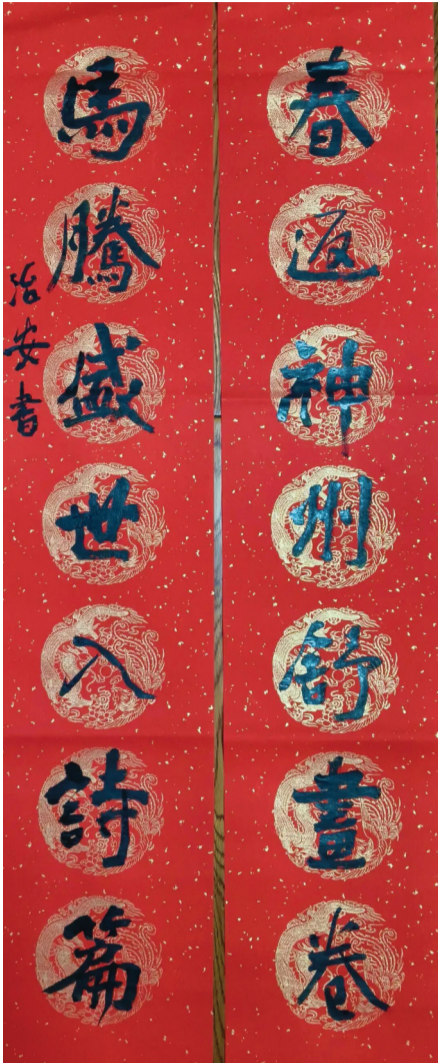 春返神州舒畫卷
馬騰盛世入詩篇
治安書